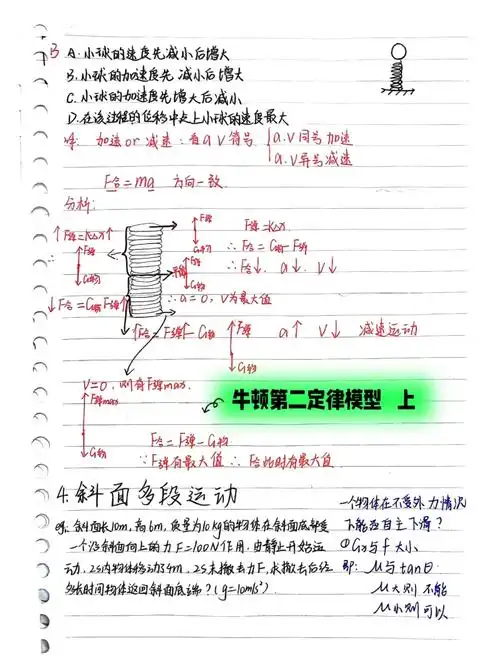 B A.小球的速度先减小后增大
B.小球的加速度先减小后增大
C.小球的加速度先增大后减小
D.在该过程的位移中点上小球的速度最大
加速or减速:看a V符号
a.V同号 加速
a.V异号 减速
F合=ma 方向一致.
分析:
↑F弹=kΔx↑
F弹
G物
F弹
G物
F弹=kΔx
∴F合=G物-F弹
∴F合↓. a↓. V↓
F弹
G物
平衡
↓F合=G物-F弹↑
∴a=0,V为最大值
↑F合=F弹↑-G物
F弹
G物
a↑ V↓ 减速运动
V=0,则有F弹max.
F弹max
G物
牛顿第二定律模型 上
F合=F弹-G物
∵F弹有最大值∴F合此时有最大值.
4.斜面多段运动
例:斜面长10m,高6m,质量为10kg的物体在斜面底部受
一个沿斜面向上的力F=100N作用,由静止开始运
动,2s内物体移动了4m,2s末撤去力F,求撤去后经
多长时间物体返回斜面底端?(g=10m/s²)
一个物体在不受外力情况
下能否自主下滑?
①Gx与f大小
即:μ与tanθ
μ大则 不能
μ小则 可以